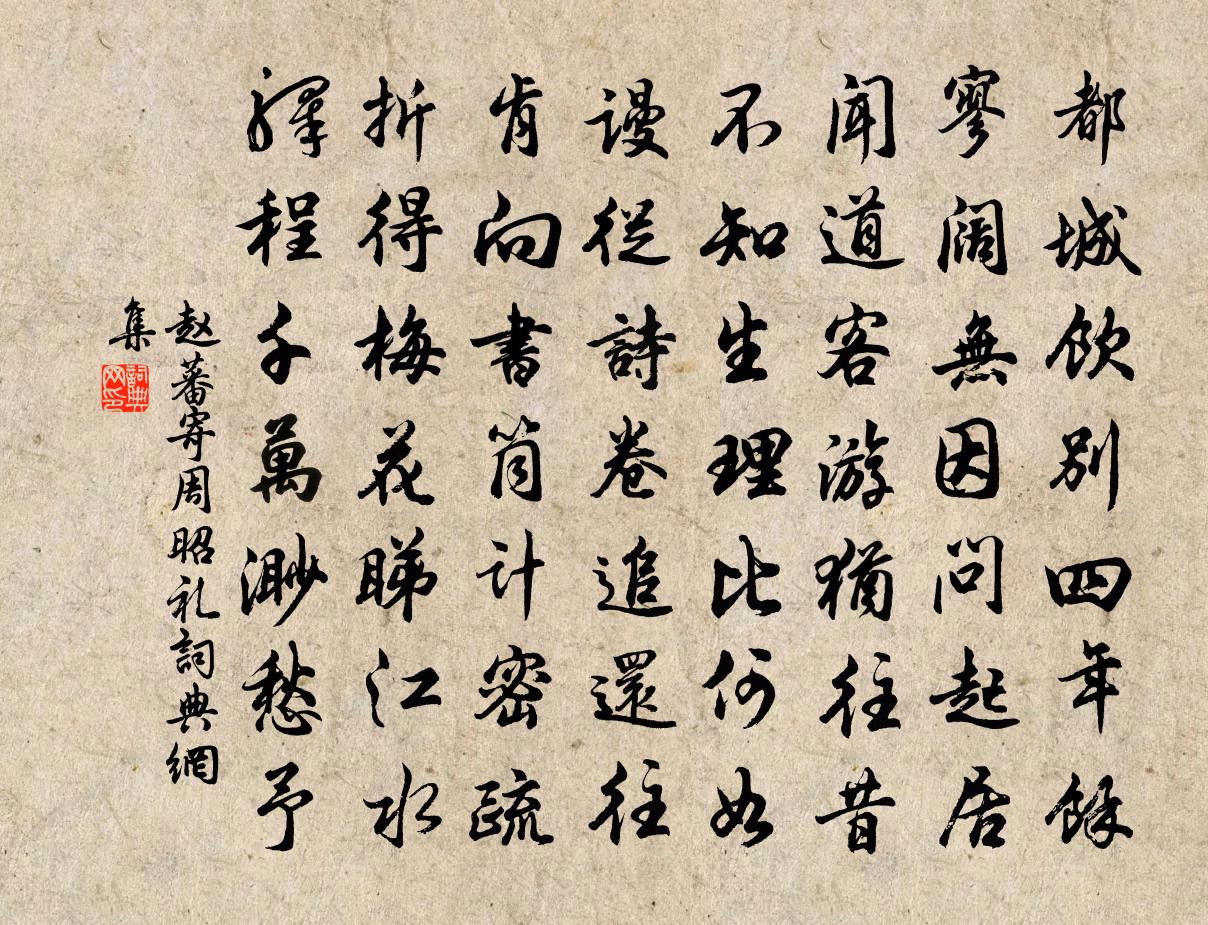 都城飲別四年餘
寥闊無因問起居
聞道客游猶往昔
不知生理比何如
謾從詩卷追還往
肯向書筒計密疏
折得梅花睇江水
驛程千萬渺愁予
赵蕃寄周昭礼詞典網
集
詞典
网印